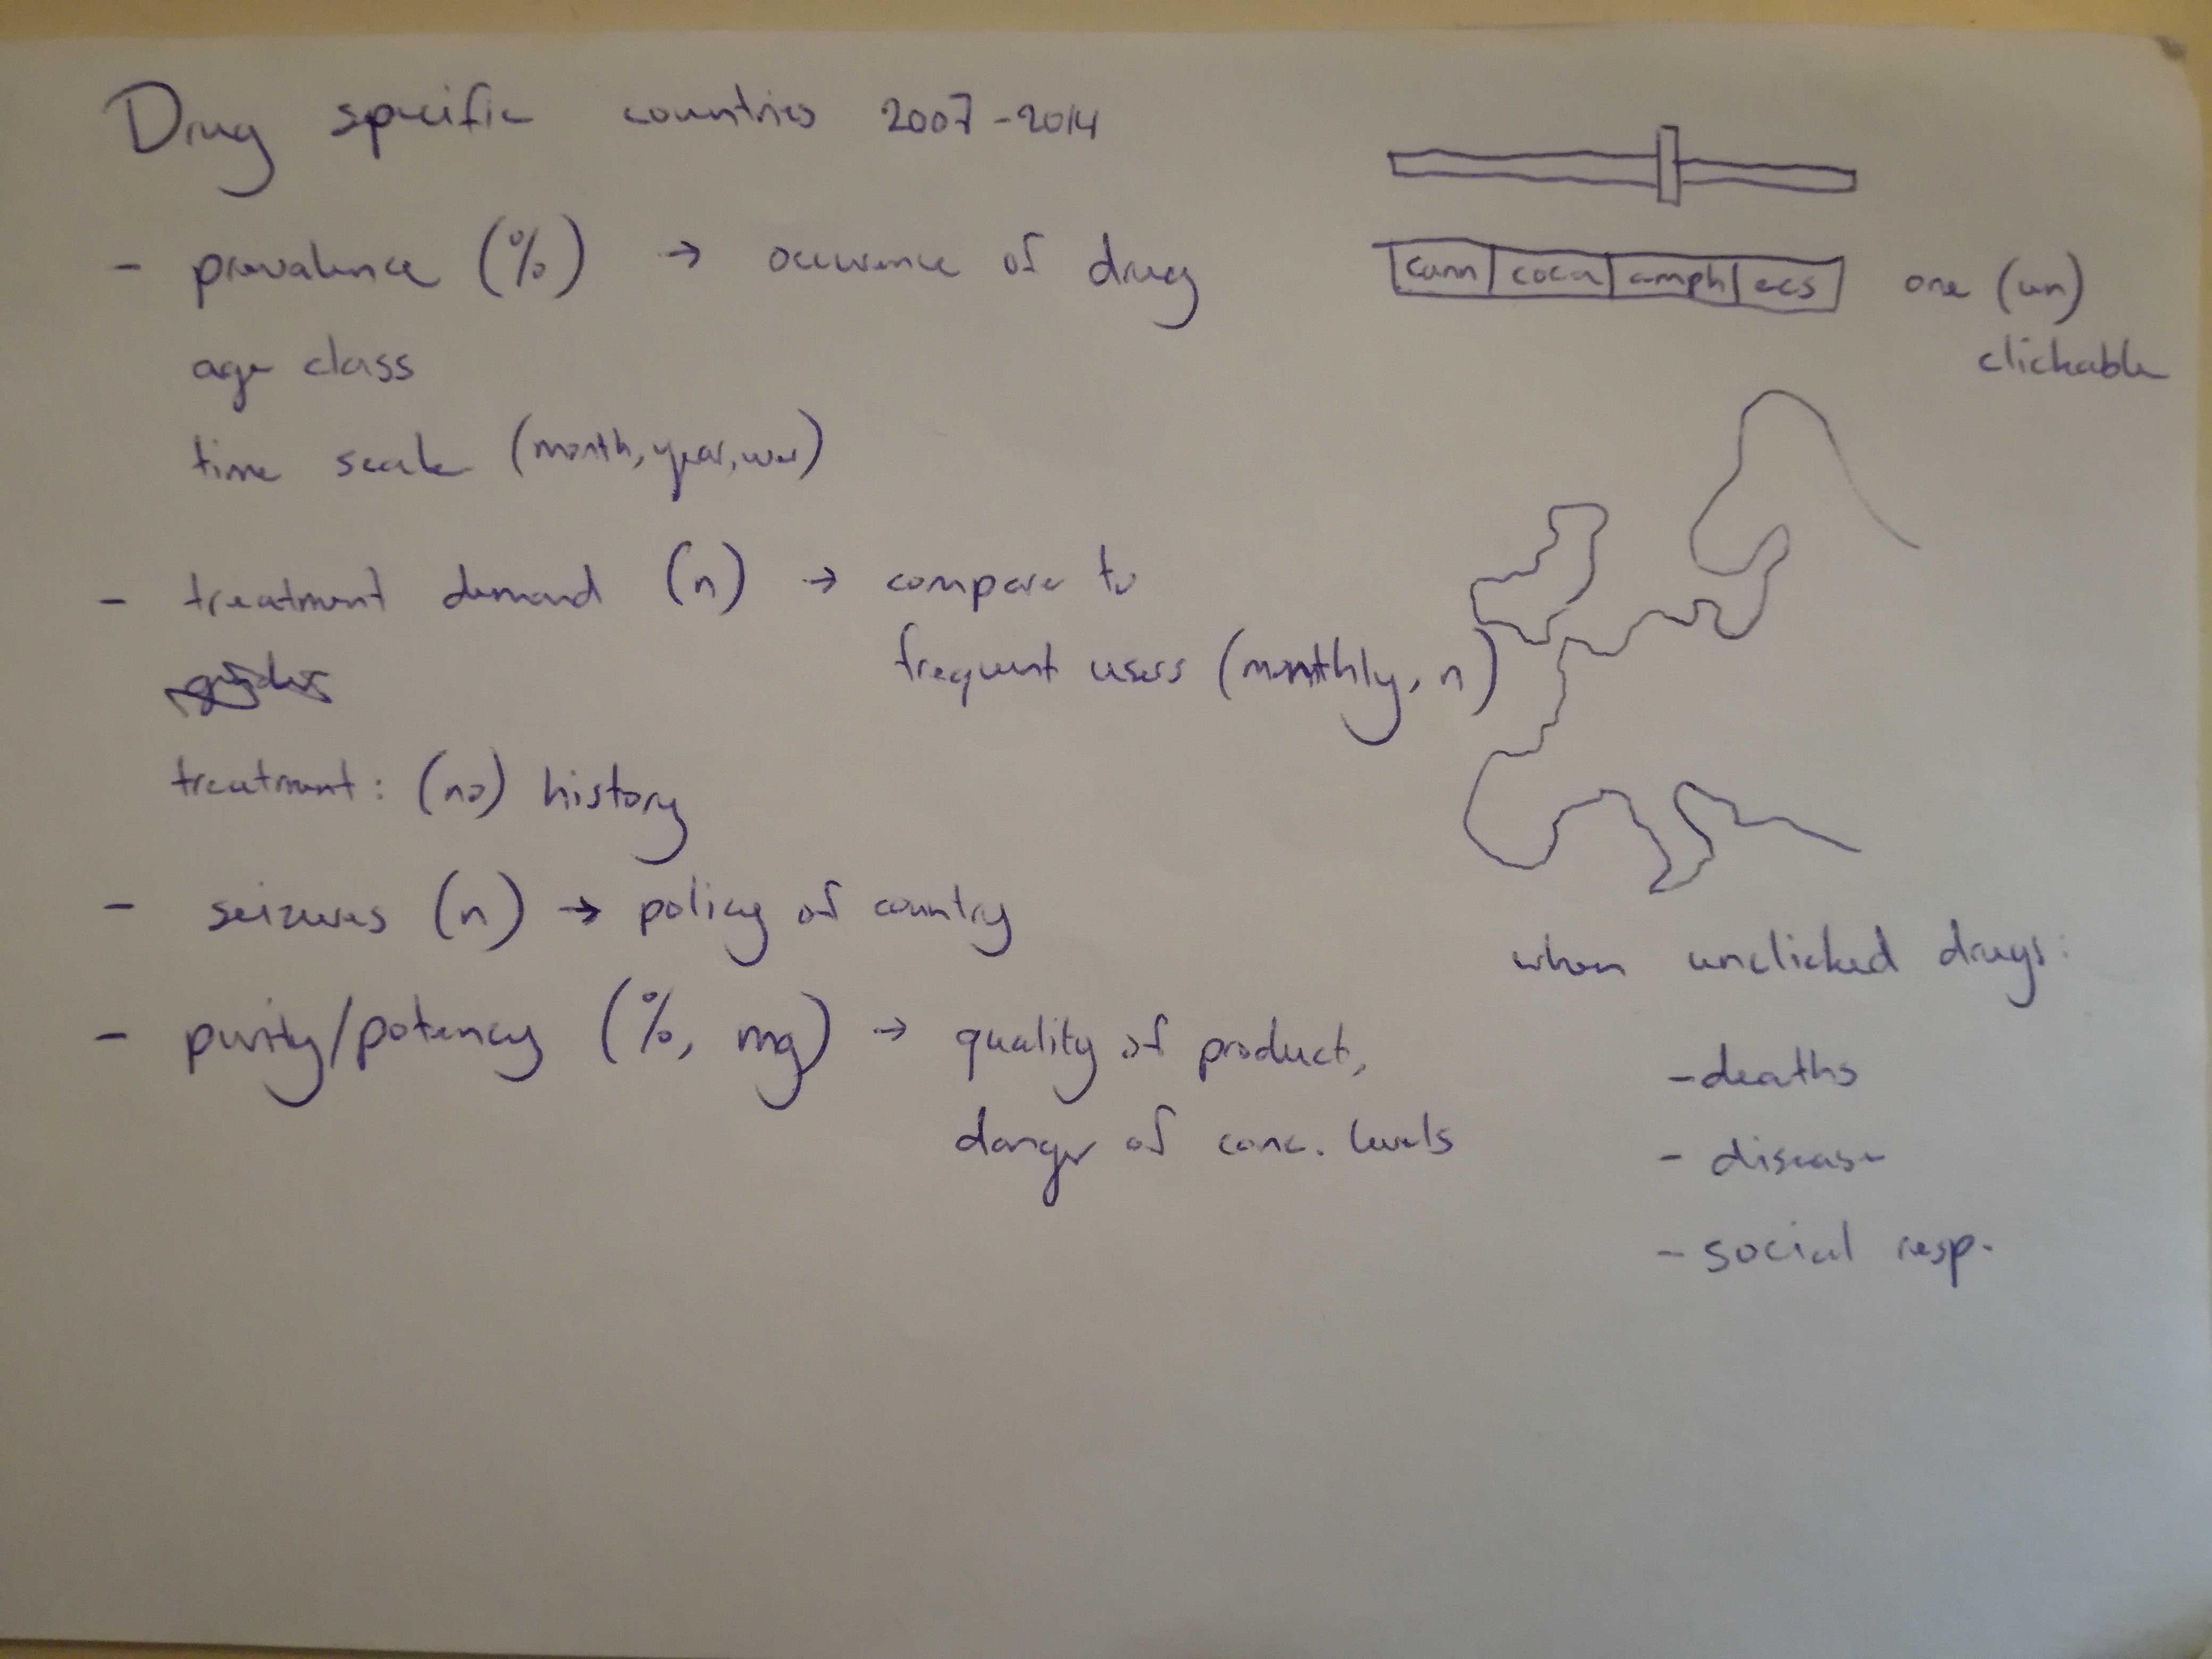 Drug specific countries 2007-2014
- prevalence (%) → occurence of drug
age class
time scale (month, year, ever)
- treatment demand (n) → compare to
frequent users (monthly, n)
treatment: (no) history
- seizures (n) → policy of country
- purity/potency (%, mg) → quality of product,
danger of conc. levels
cann coca amph ecs one (un)
clickable
when unclicked drugs:
- deaths
- disease
- social resp.